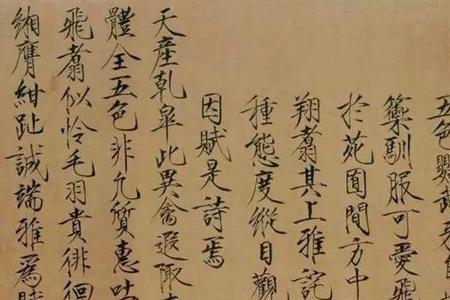 五色
籞馴服可愛飛
於苑囿間方中
翔翥其上雅詫
種態度縱目觀
因賦是詩焉
天產乾皋此異禽遐陬
體全五色非凡質惠吐
飛翥似憐毛羽貴徘徊
緗膺紺趾誠端雅爲賦